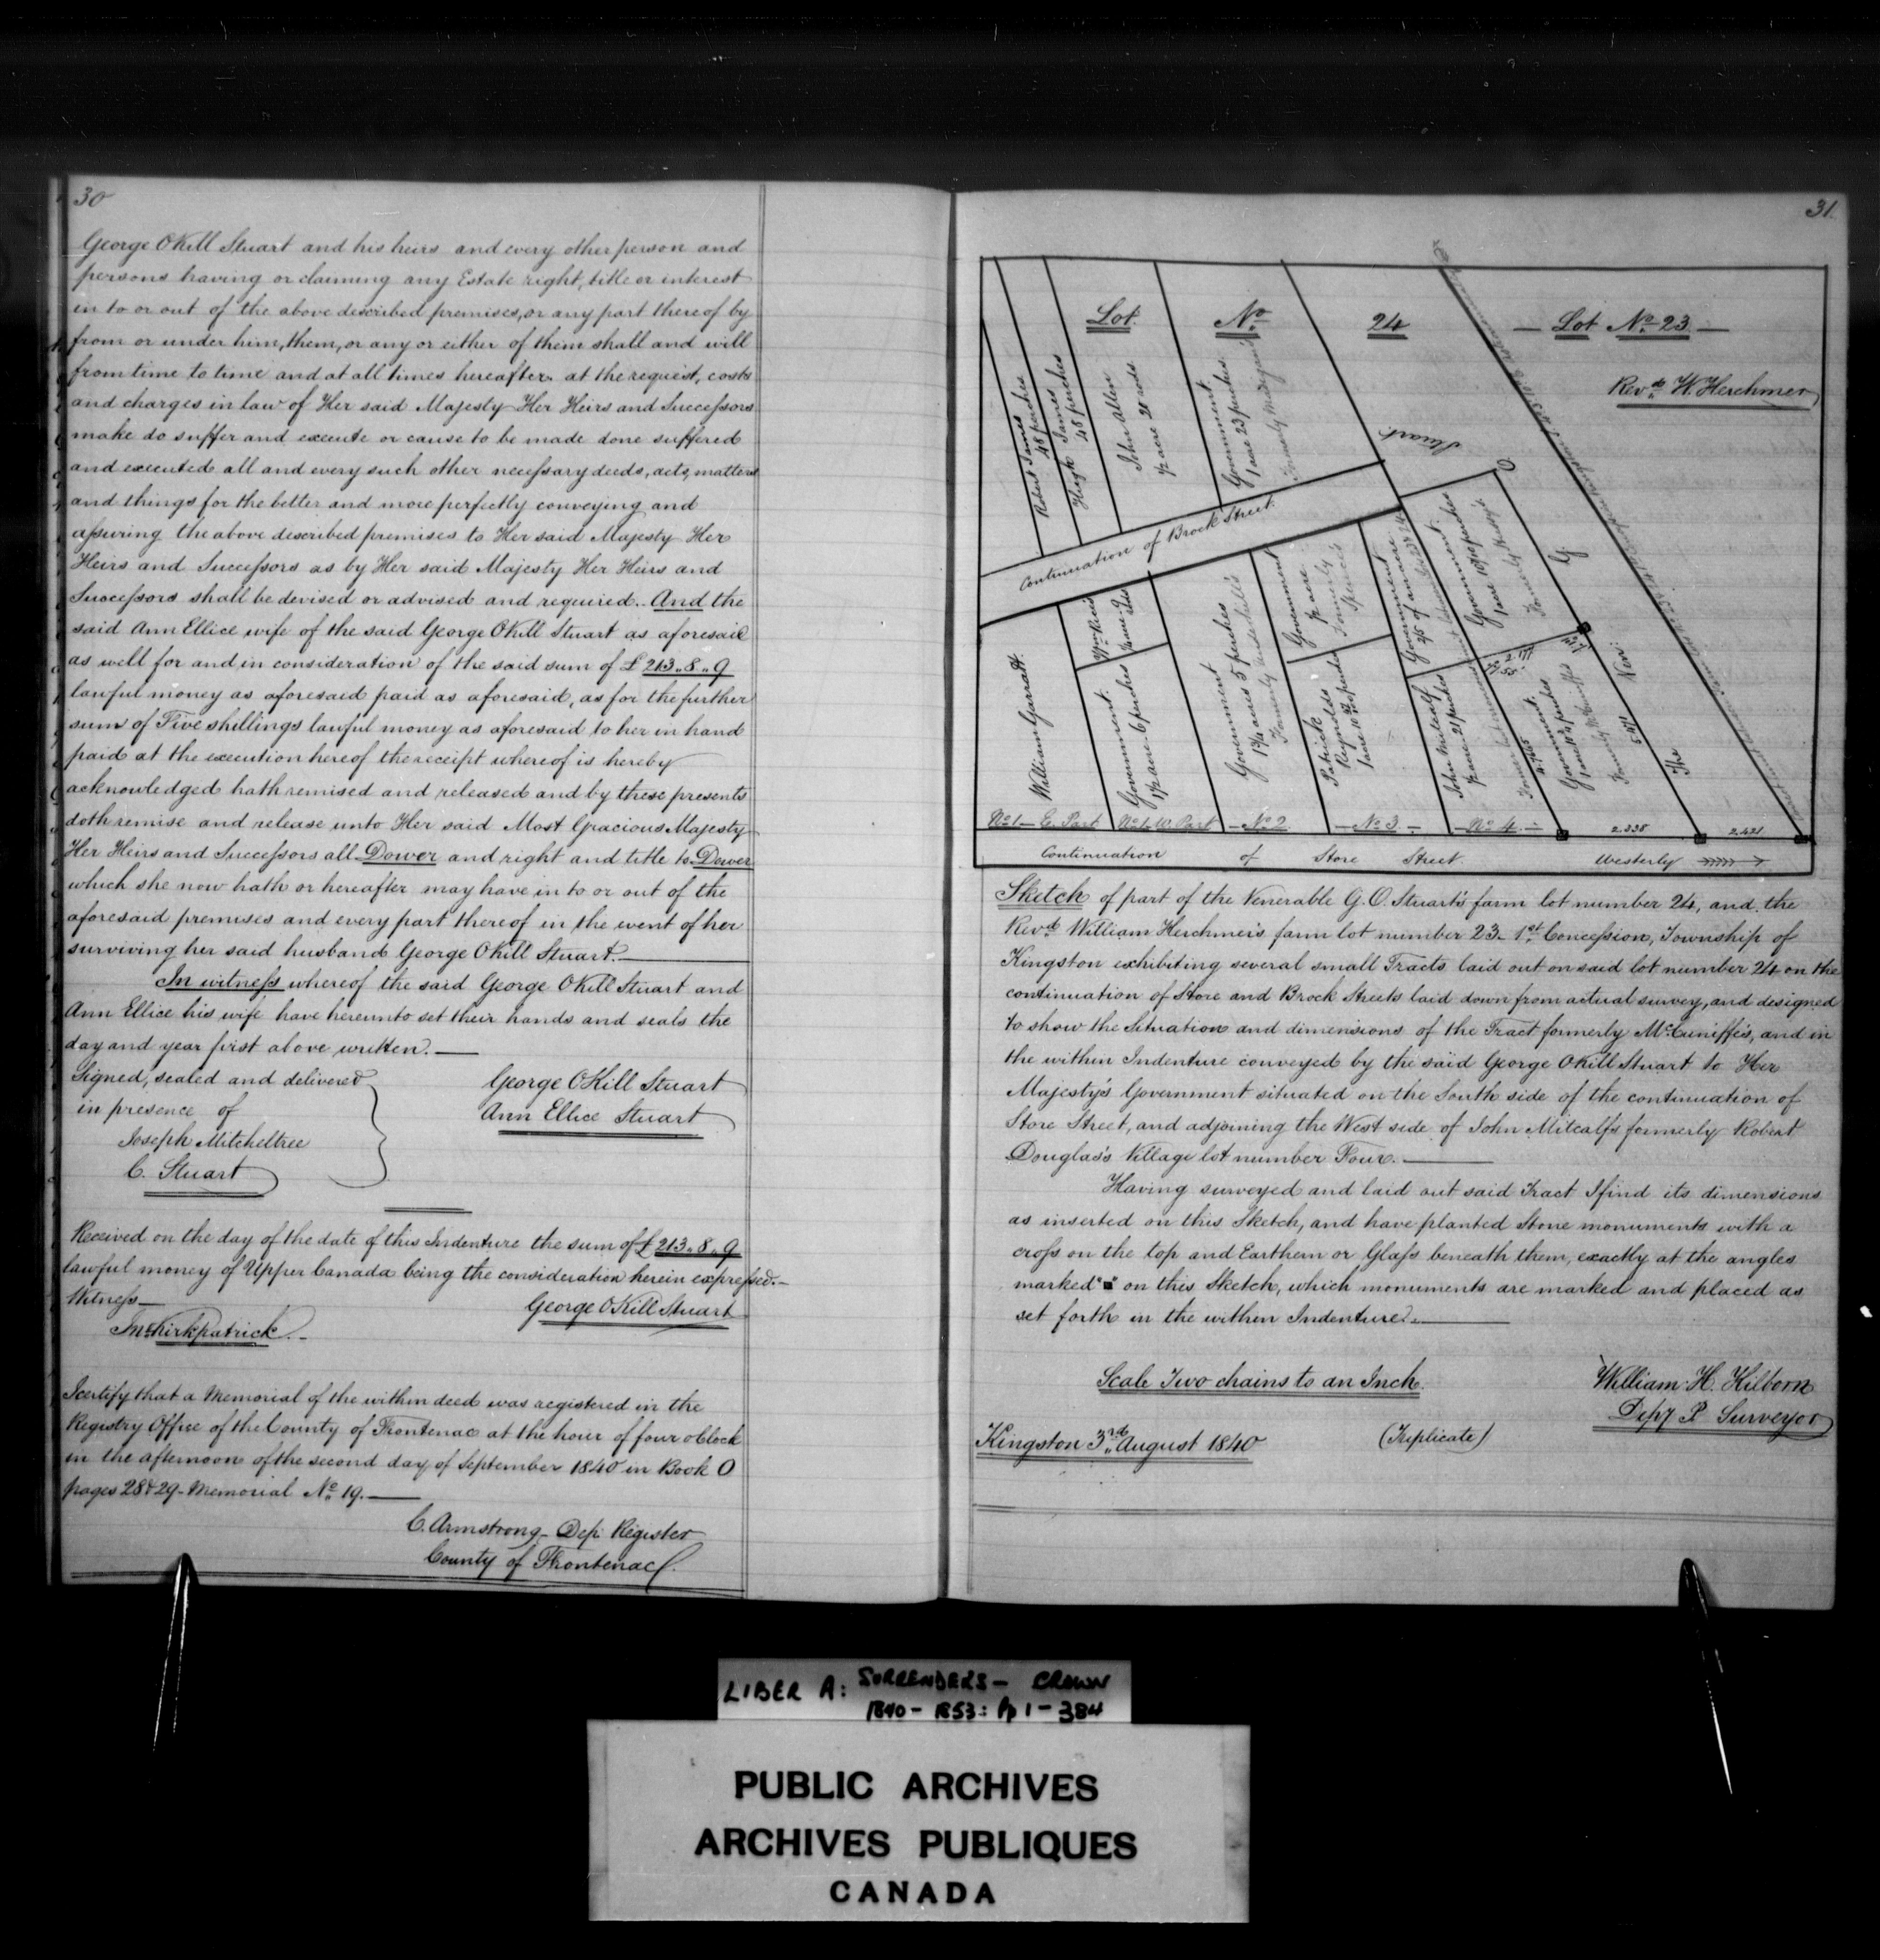 30
George OKill Stuart and his heirs and every other person and
persons having or claiming any Estate right, title or interest
in to or out of the above described premises, or any part thereof by
from or under him, them, or any or either of them shall and will
from time to time and at all times hereafter at the request, costs
and charges in law of Her said Majesty Her Heirs and Successors
make do suffer and execute or cause to be made done suffered
and executed all and every such other necessary deeds, acts, matters
and things for the better and more perfectly conveying and
assuring the above described premises to Her said Majesty Her
Heirs and Successors as by Her said Majesty Her Heirs and
Successors shall be devised or advised and required. And the
said Ann Ellice wife of the said George OKill Stuart as aforesaid
as well for and in consideration of the said sum of £213.8.9
lawful money as aforesaid paid as aforesaid, as for the further
sum of Five shillings lawful money as aforesaid to her in hand
paid at the execution hereof the receipt whereof is hereby
acknowledged hath remised and released and by these presents
doth remise and release unto Her said Most Gracious Majesty
Her Heirs and Successors all Dower and right and title to Dower
which she now hath or hereafter may have in to or out of the
aforesaid premises and every part thereof in the event of her
surviving her said husband George OKill Stuart.
In witness whereof the said George OKill Stuart and
Ann Ellice his wife have hereunto set their hands and seals the
day and year first above written.
Signed, sealed and delivered
in presence of
Joseph Mitcheltree
C. Stuart
George OKill Stuart
Ann Ellice Stuart
Received on the day of the date of this Indenture the sum of £213.8.9
lawful money of Upper Canada being the consideration herein expressed.
Witness
George OKill Stuart
Kirkpatrick
I certify that a Memorial of the within deed was registered in the
Registry Office of the County of Frontenac at the hour of four oClock
in the afternoon of the second day of September 1840 in Book O
pages 28 & 29 - Memorial No 19.
C. Armstrong - Dep. Register
County of Frontenac
31
Lot No 24
Lot No 23
Revd W. Herchmer
Robert James
48 perches
Hugh James
48 perches
John Allen
½ acre 28 rods
Government
1 acre 23 perches
Stuart
Continuation of Brock Street
G.
O.
William Garratt
Wm Reid
Government
½ acre 6 perches
Government
1¾ acres 5 perches
Government
½ acre
Formerly
Patrick
Reynolds
Government
2/5 of an acre
Government
Formerly
John Metcalf
½ acre 21 perches
Government
Formerly McCuniffes
2.177
5.471
The
Rev:
No 1 - E. Part
No 1. W. Part
No 2
No 3
No 4
2.338
2.421
Continuation of Store Street. Westerly
Sketch of part of the Venerable G. O. Stuart's farm lot number 24, and the
Revd William Herchmer's farm lot number 23 1st Concession, Township of
Kingston exhibiting several small Tracts laid out on said lot number 24 on the
continuation of Store and Brock Streets laid down from actual survey, and designed
to show the Situation and dimensions of the Tract formerly McCuniffe's, and in
the within Indenture conveyed by the said George OKill Stuart to Her
Majesty's Government situated on the South side of the continuation of
Store Street, and adjoining the West side of John Mitcalfs formerly Robert
Douglas's Village lot number Four.
Having surveyed and laid out said Tract I find its dimensions
as inserted on this Sketch, and have planted Stone monuments with a
cross on the top and Earthern or Glass beneath them, exactly at the angles
marked "■" on this Sketch, which monuments are marked and placed as
set forth in the within Indenture.
Scale Two chains to an Inch.
William H. Kilborn
Depy P Surveyor
Kingston 3rd August 1840
(Triplicate)
LIBER A: SURRENDERS - CROWN
1840 - 1853: Pp 1 - 384
PUBLIC ARCHIVES
ARCHIVES PUBLIQUES
CANADA